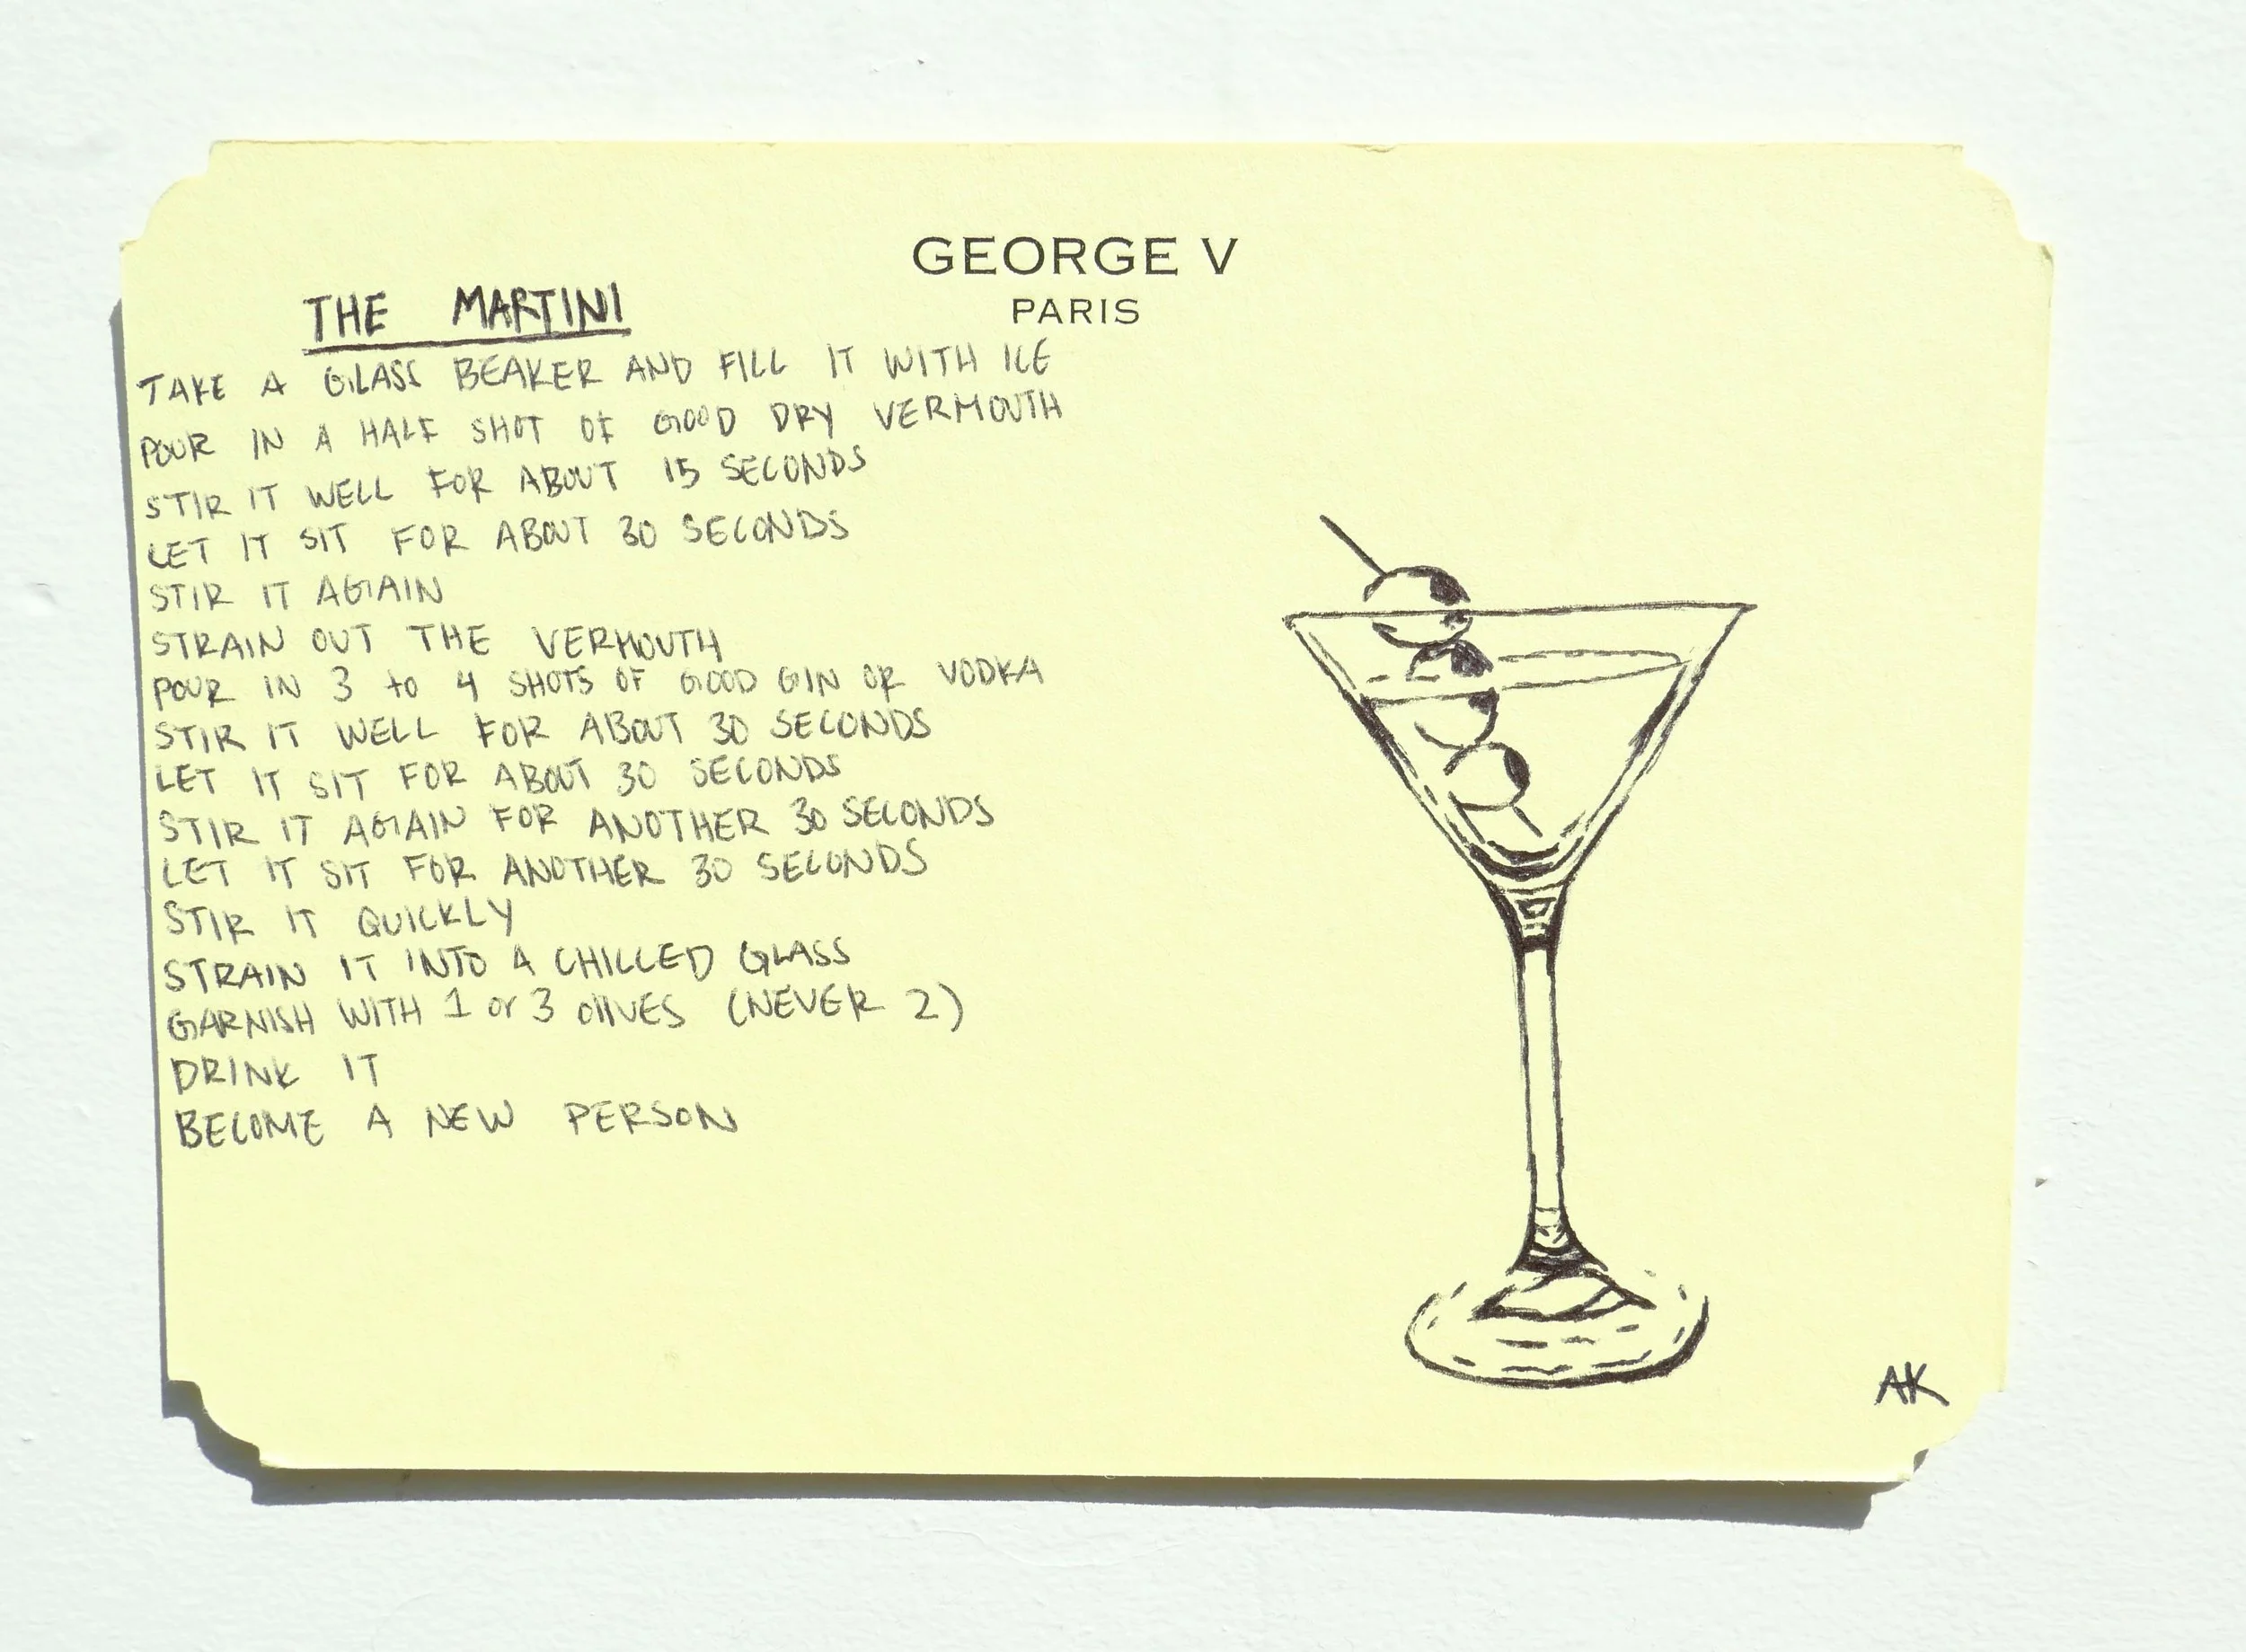 GEORGE V
PARIS
THE MARTINI
TAKE A GLASS BEAKER AND FILL IT WITH ICE
POUR IN A HALF SHOT OF GOOD DRY VERMOUTH
STIR IT WELL FOR ABOUT 15 SECONDS
LET IT SIT FOR ABOUT 30 SECONDS
STIR IT AGAIN
STRAIN OUT THE VERMOUTH
POUR IN 3 to 4 SHOTS OF GOOD GIN OR VODKA
STIR IT WELL FOR ABOUT 30 SECONDS
LET IT SIT FOR ABOUT 30 SECONDS
STIR IT AGAIN FOR ANOTHER 30 SECONDS
LET IT SIT FOR ANOTHER 30 SECONDS
STIR IT QUICKLY
STRAIN IT INTO A CHILLED GLASS
GARNISH WITH 1 or 3 OlIVES (NEVER 2)
DRINK IT
BECOME A NEW PERSON
AK